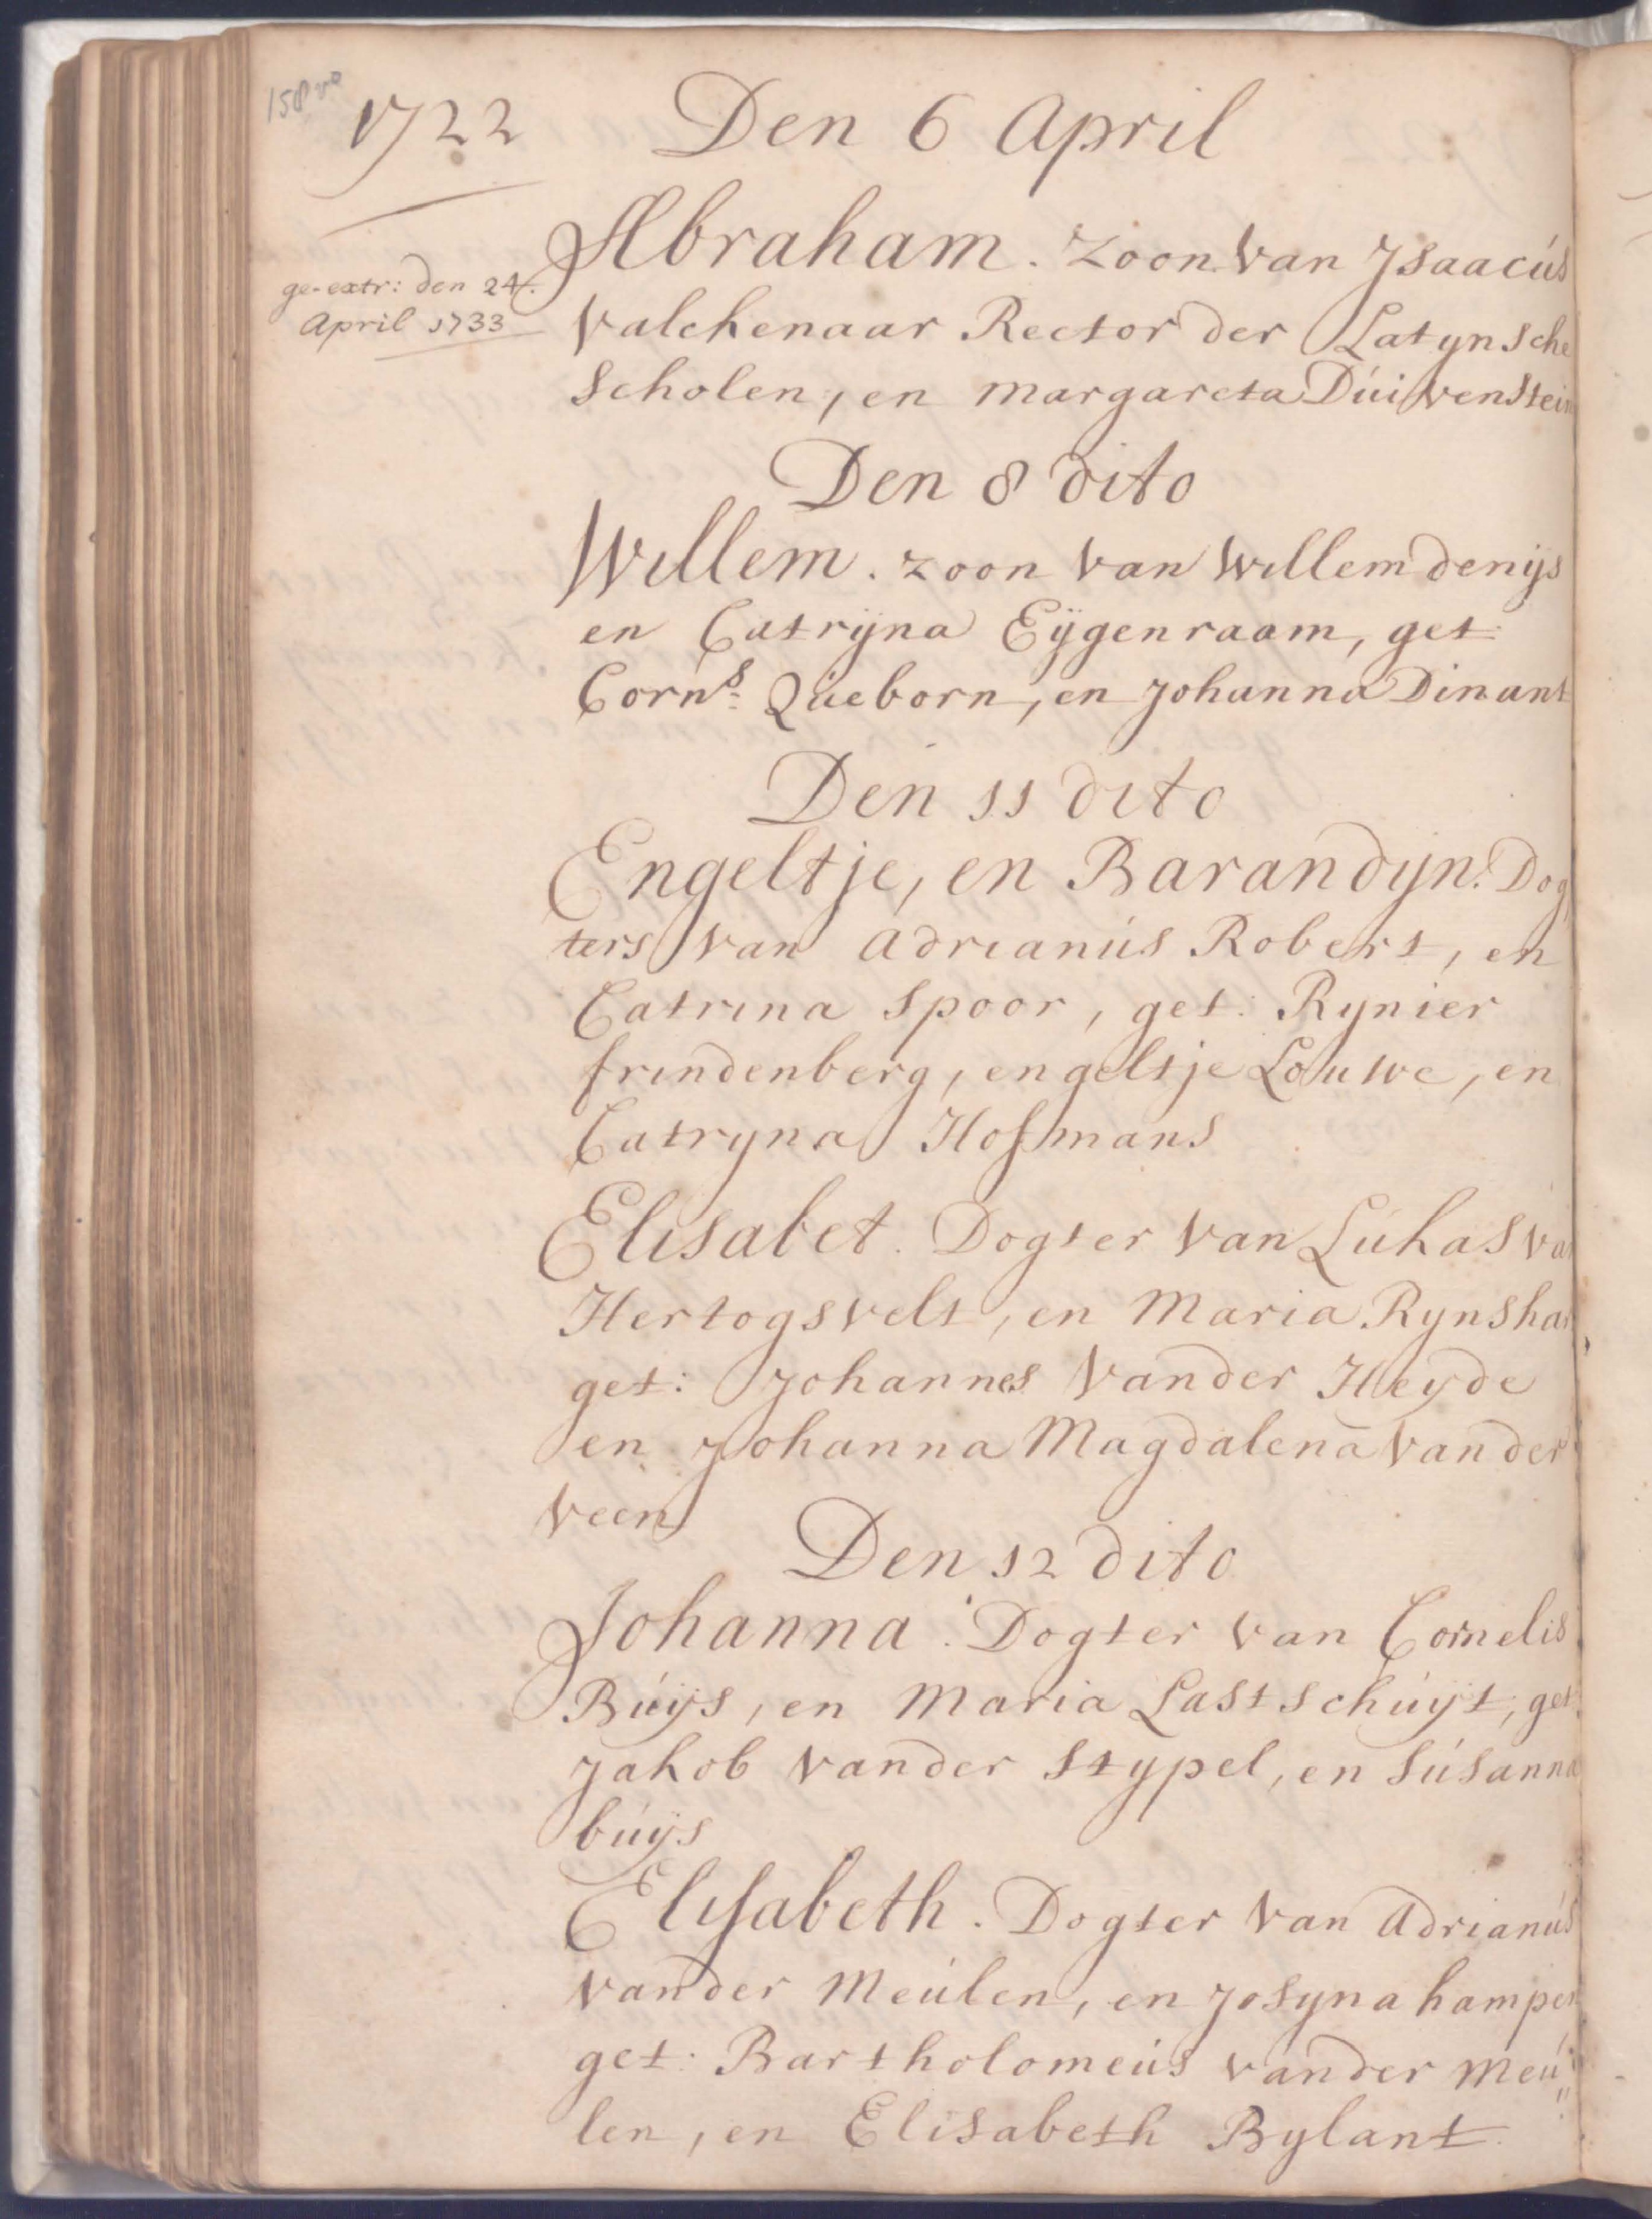 158 vo
1722 Den 6 April
Abraham. Zoon van Jsaacús
ge-extr: den 24.
April 1733
Valckenaar Rector der Latynsche
Scholen, en Margareta Dúivenstein
Den 8 dito
Willem. Zoon van Willem denijs
en Catrÿna Eÿgenraam, get:
Corn.s Qúeborn, en Johanna Dinant
Den 11 dito
Engeltje, en Barandyn. Dog
ters van Adrianús Robert, en
Catrina Spoor, get: Rynier
frindenberg, engeltje Louwe, en
Catryna Hofmans
Elisabet. Dogter van Lúkas va
Hertogsvelt, en Maria Rynshar
get: Johannes vander Heyde
en Johanna Magdalena vander
veen
Den 12 dito
Johanna. Dogter van Cornelis
Búÿs, en Maria Lastschúÿt, get:
Jakob vander Stypel, en Súsanna
búÿs
Elisabeth. Dogter van Adrianús
vander Meúlen, en Josyna hamper
get: Bartholomeús vander Meú"
len, en Elisabeth Bylant.